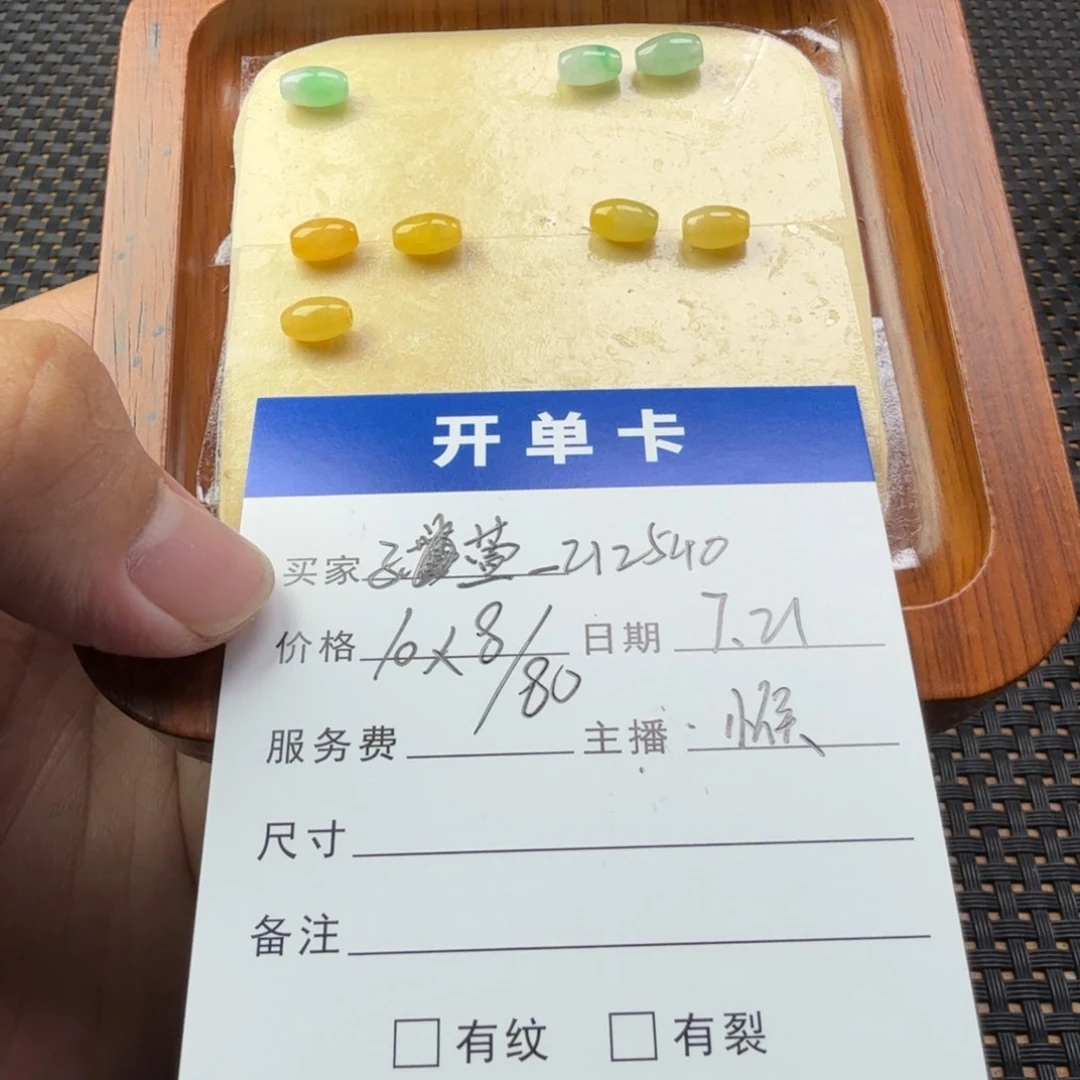 开单卡
买家 萱_212540
价格 10×8/80 日期 7.21
服务费 主播: 猴
尺寸
备注
有纹 有裂